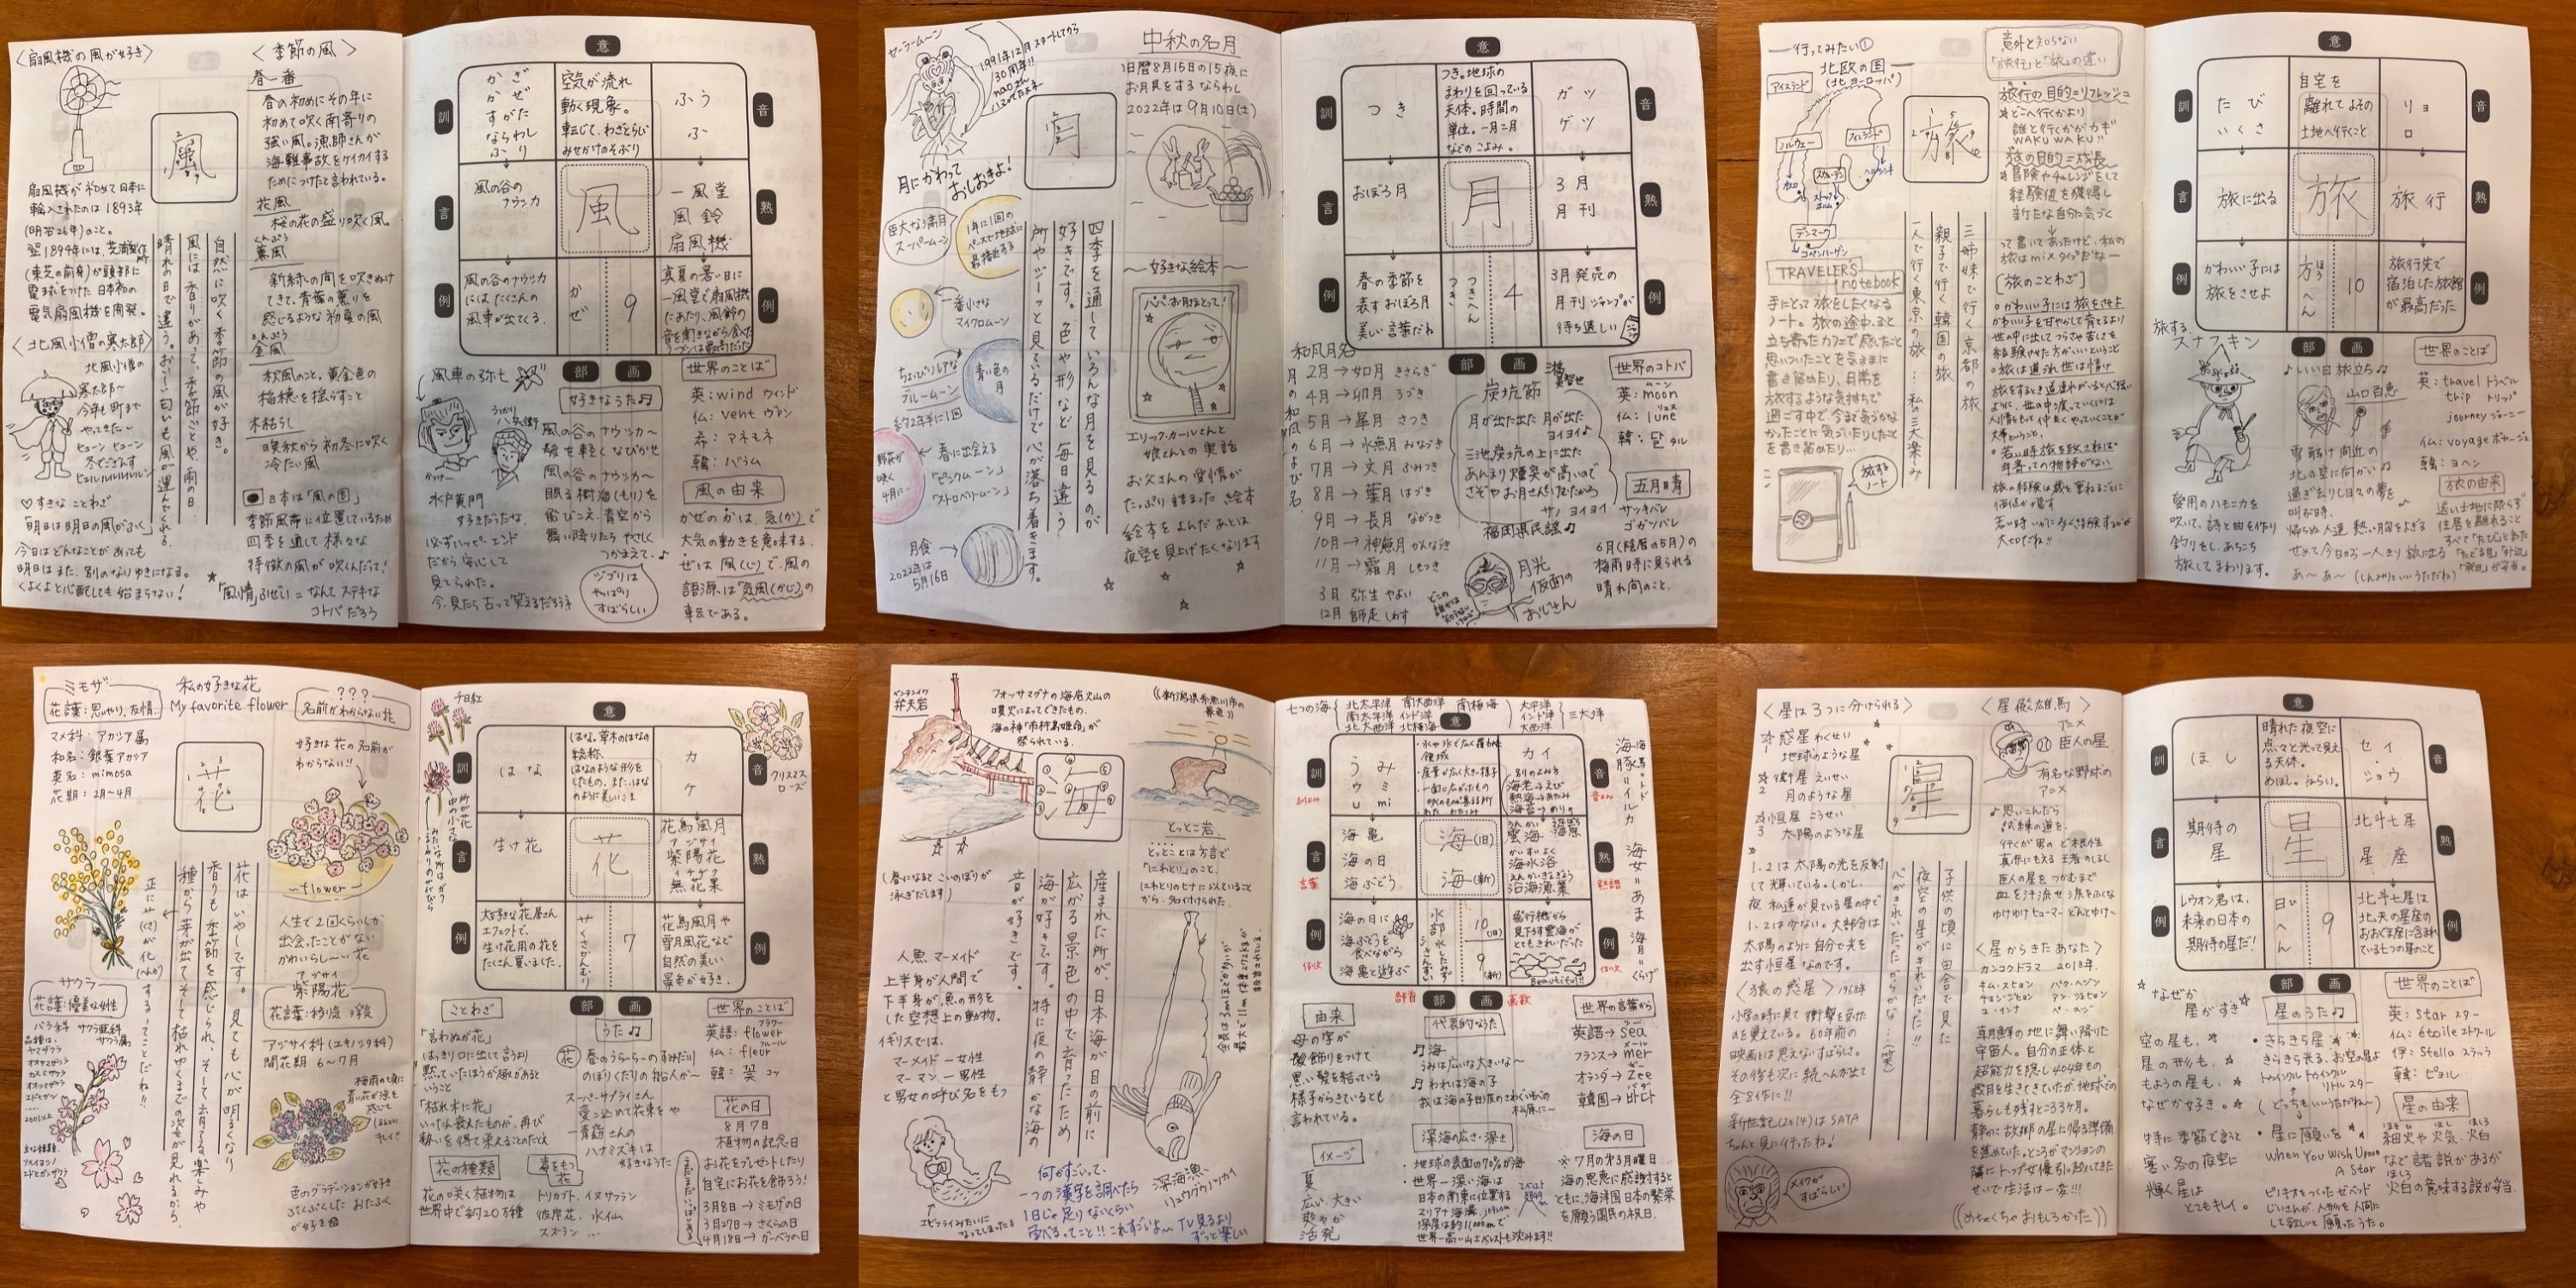 〈扇風機の風が好き〉
扇風機が初めて日本に
輸入されたのは1893年
(明治26年)のこと。
翌1894年には、芝浦製作所
(東芝の前身)が頭部に
電球をつけた日本初の
電気扇風機を開発。
〈北風小僧の寒太郎〉
北風小僧の
寒太郎〜
今年も町まで
やってきた〜
ヒューン ヒューン
冬でござんす
ヒュルルルルルルン
♡すきなことわざ
「明日は明日の風がふく」
今日はどんなことがあっても
明日はまた、別のなりゆきになる。
くよくよと心配しても始まらない!
風
自然に吹く季節の風が好き。
風には香りがあって、季節ごとや、雨の日、
晴れの日で違う。おいしい匂いも風が運んでくれる。
〈季節の風〉
春一番
春の初めにその年に
初めて吹く南寄りの
強い風。漁師さんが
海難事故をケイカイする
ためにつけたと言われている。
花風
桜の花の盛りに吹く風
くんぷう
薫風
新緑の間を吹きぬけ
てきて、青葉の薫りを
感じるような初夏の風
きんぷう
金風
秋風のこと。黄金色の
稲穂を揺らすこと
木枯らし
晩秋から初冬に吹く
冷たい風
日本は「風の国」
季節風帯に位置しているため
四季を通して様々な
特徴の風が吹くんだって!
「風情」ふぜい = なんてステキな
コトバだろう
意
訓
かぜ
かざ
すがた
ならわし
ふり
空気が流れ
動く現象。
転じて、わざとらしい
みせかけのそぶり
音
ふう
ふ
言
風の谷の
ナウシカ
風
熟
一風堂
風鈴
扇風機
例
風の谷のナウシカ
にはたくさんの
風車が出てくる。
かぜ
9
例
真夏の暑い日に
一風堂で扇風機
にあたり、風鈴の
音を聞きながら食べた
ラーメンは最高だった
部
画
風車の弥七
うっかり
八兵衛
水戸黄門
好きだったな。
必ずハッピーエンド
だから安心して
見てられた。
今、見たら古って笑えるだろうネ
好きなうた♫
風の谷のナウシカ〜
髪を軽くなびかせ
風の谷のナウシカ〜
眠る樹海(もり)を
飛びこえ 青空から
舞い降りたら やさしく
つかまえて。♪
ジブリは
やっぱり
すばらしい
世界のことば
英:wind ウィンド
仏:vent ヴァン
希:アネモネ
韓:バラム
風の由来
かぜのかは、気(か)で
大気の動きを意味する。
ぜは風(じ)で、風の
語源は「気風(かじ)」の
転である。
セーラームーン
1991年12月スタートしてから
30周年!!
月にかわって
おしおきよ!
巨大な満月
スーパームーン
1年に1回の
ペースで地球に
最接近する
一番小さな
マイクロムーン
ちょぴりレアな
ブルームーン
約2年半に1回
青い色の
月
野苺が
咲く
4月に…
春に出会える
「ピンクムーン」
「ストロベリームーン」
月食
2022年は
5月16日
月
四季を通していろんな月を見るのが
好きです。色や形など毎日違う
所やジーッと見ているだけで心が落ち着きます。
中秋の名月
旧暦8月15日の15夜に
お月見をするならわし
2022年は9月10日(土)
〜好きな絵本〜
パパ、お月さまとって!
エリック・カールさんと
娘さんとの実話
お父さんの愛情が
たっぷり詰まった絵本
絵本をよんだあとは
夜空を見上げたくなります
意
訓
つき
つき。地球の
まわりを回っている
天体。時間の
単位。一月二月
などのこよみ。
音
ガツ
ゲツ
言
おぼろ月
月
熟
3月
月刊
例
春の季節を
表すおぼろ月
美しい言葉だね
つき
つきへん
4
例
3月発売の
月刊ジャンプが
待ち遠しい
部
画
和風月名
月の和風のよび名
2月→如月 きさらぎ
4月→卯月 うづき
5月→皐月 さつき
6月→水無月 みなづき
7月→文月 ふみづき
8月→葉月 はづき
9月→長月 ながつき
10月→神無月 かんなづき
11月→霜月 しもつき
3月 弥生 やよい
12月 師走 しわす
炭坑節
月が出た出た 月が出た
ヨイヨイ♪
三池炭坑の上に出た
あんまり煙突が高いので
さぞやお月さんけむたかろ
サノヨイヨイ
福岡県民謡♫
月光
仮面の
おじさん
世界のコトバ
英:moon ムーン
仏:lune リュヌ
韓:달 タル
五月晴
サツキバレ
ゴガツバレ
6月(陰暦の5月)の
梅雨時に見られる
晴れ間のこと。
行ってみたい①
北欧の国
(北ヨーロッパ)
アイスランド
ノルウェー
オスロ
フィンランド
ヘルシンキ
スウェーデン
ストックホルム
デンマーク
コペンハーゲン
TRAVELER'S
notebook
手にとって旅をしたくなる
ノート。旅の途中、ふと
立ち寄ったカフェで感じたこと
思いついたことを気ままに
書き留めたり、日常を
旅するような気持ちで
過ごす中で、今まで気づかな
かったことに気づいたりしたこと
を書き留めたり…
旅する
ノート
旅
三姉妹で行く京都の旅
親子で行く韓国の旅
一人で行く東京の旅…私の三大楽しみ
意外と知らない
「旅行」と「旅」の違い
旅行の目的=リフレッシュ
どこへ行くかより
誰と行くかがカギ
WAKU WAKU!!
旅の目的=成長
冒険やチャレンジをして
経験値を獲得し
新たな自分に気づく
って書いてあったけど、私の
旅はmixタイプだなー
[旅のことわざ]
かわいい子には旅をさせよ
かわいい子を甘やかして育てるより
世の中に出してつらさや苦しさを
経験させた方がいいということ
旅は道連れ世は情け
意
訓
たび
いくさ
自宅を
離れてよその
土地へ行くこと
音
リョ
ロ
言
旅に出る
旅
熟
旅行
例
かわいい子には
旅をさせよ
方へん
ほう
10
例
旅行先で
宿泊した旅館
が最高だった
部
画
旅する
スナフキン
愛用のハモニカを
吹いて、詩と曲を作り
釣りをし、あちこち
旅してまわります。
♪いい日旅立ち♫
山口百恵
雪解け間近の
北の空に向かい♫
過ぎ去りし日々の夢を
叫ぶ時、
帰らぬ人達 熱い胸をよぎる
せめて今日から一人きり 旅に出る
あ〜あ〜 (しんみりといいうただね)
世界のことば
英:travel トラベル
trip トリップ
journey ジャーニー
仏:voyage ボヤージュ
韓:ヨヘン
旅の由来
遠い土地に限らず
住居を離れること
ミモザ
花言葉:思いやり、友情
マメ科・アカシア属
和名:銀葉アカシア
英名:mimosa
花期:2月〜4月
私の好きな花
My favorite flower
???
名前がわからない花
好きな花の名前が
わからない!!
〜flower〜
人生で2回くらいしか
出会ったことがない
かわいらし〜い花
花
花はいやしです。見ても心が明るくなり
香りも季節を感じられ、そして育てる楽しみや
種から芽が出てそして枯れゆくまでの姿が見れるから。
正に艹(くさ)が化(へんか)するってことだね!!
サクラ
花言葉:優美な女性
バラ科 サクラ亜科
サクラ属
アジサイ
紫陽花
花言葉:移り気
アジサイ科(ユキノシタ科)
開花期 6〜7月
色のグラデーションが好き
千日紅
クリスマス
ローズ
意
訓
はな
はな、草木のはなの
総称。
はなのような形を
したもの。また、はな
のように美しいさま
音
カ
ケ
言
生け花
花
熟
花鳥風月
アジサイ
紫陽花
イチジク
無花果
例
大好きな花屋さん
エフェクトで、
生け花用の花を
たくさん買いました。
くさかんむり
7
例
花鳥風月や
雪月風花など
自然の美しい
景色が好き。
部
画
ことわざ
「言わぬが花」
はっきり口に出して言うより
黙っていたほうが趣があると
いうこと
「枯れ木に花」
いったん衰えたものが、再び
勢いを得て栄えることのたとえ
花の種類
花の咲く植物は
世界中で約20万種
うた♫
花 春のうらら〜のすみだ川
のぼりくだりの船人が〜
スーパーフライさん
愛を込めて花束を や
一青窈さんの
ハナミズキは
好きなうた
毒をもつ
花
トリカブト、イヌサフラン
彼岸花、水仙
スズラン …
世界のことば
英語:flower フラワー
仏:fleur フルール
韓:꽃 コッ
花の日
8月7日
植物の記念日
お花をプレゼントしたり
自宅にお花を飾ろう!
3月8日→ミモザの日
3月27日→さくらの日
4月18日→ガーベラの日
まだまだいっぱいあるよ
ベンテンイワ
弁天岩
フォッサマグナの海底火山の
噴火によってできたもの。
海の神「市杵島姫命」が
祭られている。
(春になるとこいのぼりが
泳ぎだします)
((新潟県糸魚川市の
景色))
とっとこ岩
とっとことは方言で
「にわとり」のこと。
にわとりのヒナに似ていること
から、名付けられた。
海
産まれた所が、日本海が目の前に
広がる景色の中で育ったため
海が好きです。特に夜の静かな海の
音が好きです。
人魚 マーメイド
上半身が人間で
下半身が魚の形を
した空想上の動物。
イギリスでは、
マーメイド―女性
マーマン―男性
と男女の呼び名をもつ
エビフライみたいに
なってしまった
全長は3mほどが多いが
最大で11m 体重272kgが
報告されている。
深海魚
リュウグウノツカイ
何がすごいって、
一つの漢字を調べたら
1日じゃ足りないくらい
学べるってこと!!これすごいよ〜 TV見るより
ずっと楽しい
七つの海
北太平洋 南大西洋 南極海
南太平洋 インド洋
北大西洋 北極海
太平洋
インド洋
大西洋
三大洋
意
訓
訓よみ
うみ
ウミ
umi
音
音よみ
カイ
別のよみ方
海老→えび
熱海→あたみ
海苔→のり
言
言葉
海亀
海の日
海ぶどう
海(旧)
海(新)
熟
熟語
うんかい
雲海
かいすいよく
海水浴
えんかいぎょぎょう
沿海漁業
例
例文
海の日に
海ぶどうを
食べながら
海亀と遊ぶ
水部
10(旧)
9(新)
例
例文
飛行機から
見下ろす雲海が
とてもきれいだった
Beautiful!!
海豚=イルカ
海女=あま
海月=くらげ
部首
部
画
画数
由来
母の字が
髪飾りをつけて
黒い髪を結っている
様子からきているとも
言われている。
イメージ
夏
広い、大きい
爽やか
活発
代表的なうた
♫海
うみは広いな大きいな〜
♫われは海の子
我は海の子白波のさわぐいその
松原に〜
深海の広さ・深さ
・地球の表面の70%が海
・世界一深い海は
日本の南東に位置する
マリアナ海溝
深度は約11,000mで
世界一高い山エベレストも沈みます!!
世界の言葉から
英語→sea シー
フランス→mer メール
オランダ→Zee ゼー
韓国→바다 バダ
海の日
※7月の第3月曜日
海の恩恵に感謝すると
ともに、海洋国日本の繁栄
を願う国民の祝日。
〈星は3つに分けられる〉
1 惑星 わくせい
地球のような星
2 衛星 えいせい
月のような星
3 恒星 こうせい
太陽のような星
1、2は太陽の光を反射
して輝いている。しかし、
夜、私達が見ている星の中で
1、2は少ない。大部分は
太陽のように自分で光を
出す恒星なのです。
〈猿の惑星〉1968年
小学の時に見て衝撃を受けた
のを覚えている。60年前の
映画とは思えないすばらしさ。
その後も次々に続へんが出て
全8作に!!
新世紀(2014)はSATA
ちゃんと見に行ったね!
メイクが
すばらしい
星
子供の頃に田舎で見た
夜空の星がきれいだった!!
心がきれいだったからかな…(笑)
〈星飛雄馬〉
アニメ
巨人の星
有名な野球の
アニメ
♪思いこんだら
試練の道を
行くが男のど根性
真赤にもえる王者のしるし
巨人の星をつかむまで
血と汗流せ 涙をふくな
ゆけゆけヒューマ どんとゆけ〜
〈星からきたあなた〉
カンコクドラマ 2013年
キム・スヒョン
チョン・ジヒョン
朝鮮の地に舞い降りた
宇宙人。自分の正体と
超能力を隠し404年もの
歳月を生きてきていたが、地球での
暮らしも残すところ3ヶ月。
静かに故郷の星に帰る準備
を進めていた。ところがマンションの
隣にトップ女優引っ越してきた
せいで生活は一変!!!
((めちゃくちゃおもしろかった))
意
訓
ほし
晴れた夜空に
点々と光って見え
る天体。
めぼし。ほらい。
音
セイ
・
ショウ
言
期待の
星
星
熟
北斗七星
星座
例
レウォン君は、
未来の日本の
期待の星だ!
日へん
ひ
9
例
北斗七星は
北天の星座の
おおぐま座に含まれ
ている七つの星のこと
部
画
なぜか
星がすき
空の星も、
星の形も、
もようの星も、
なぜか好き。
特に季節で言うと
寒い冬の夜空に
輝く星は
とてもキレイ。
星のうた♫
・きらきら星
きらきら光る、お空の星よ
トゥインクル トゥインクル
リトル スター
(どっちもいいうただね〜)
・星に願いを
When You Wish Upon
A Star
ピノキオをつくったゼペット
じいさんが、人形を人間に
して欲しいと願ったうた。
世界のことば
英:star スター
仏:étoile エトワール
伊:Stella ステッラ
韓:ピョル
星の由来
細火や火気、火白
など諸説があるが
火白の意味する説が有力。